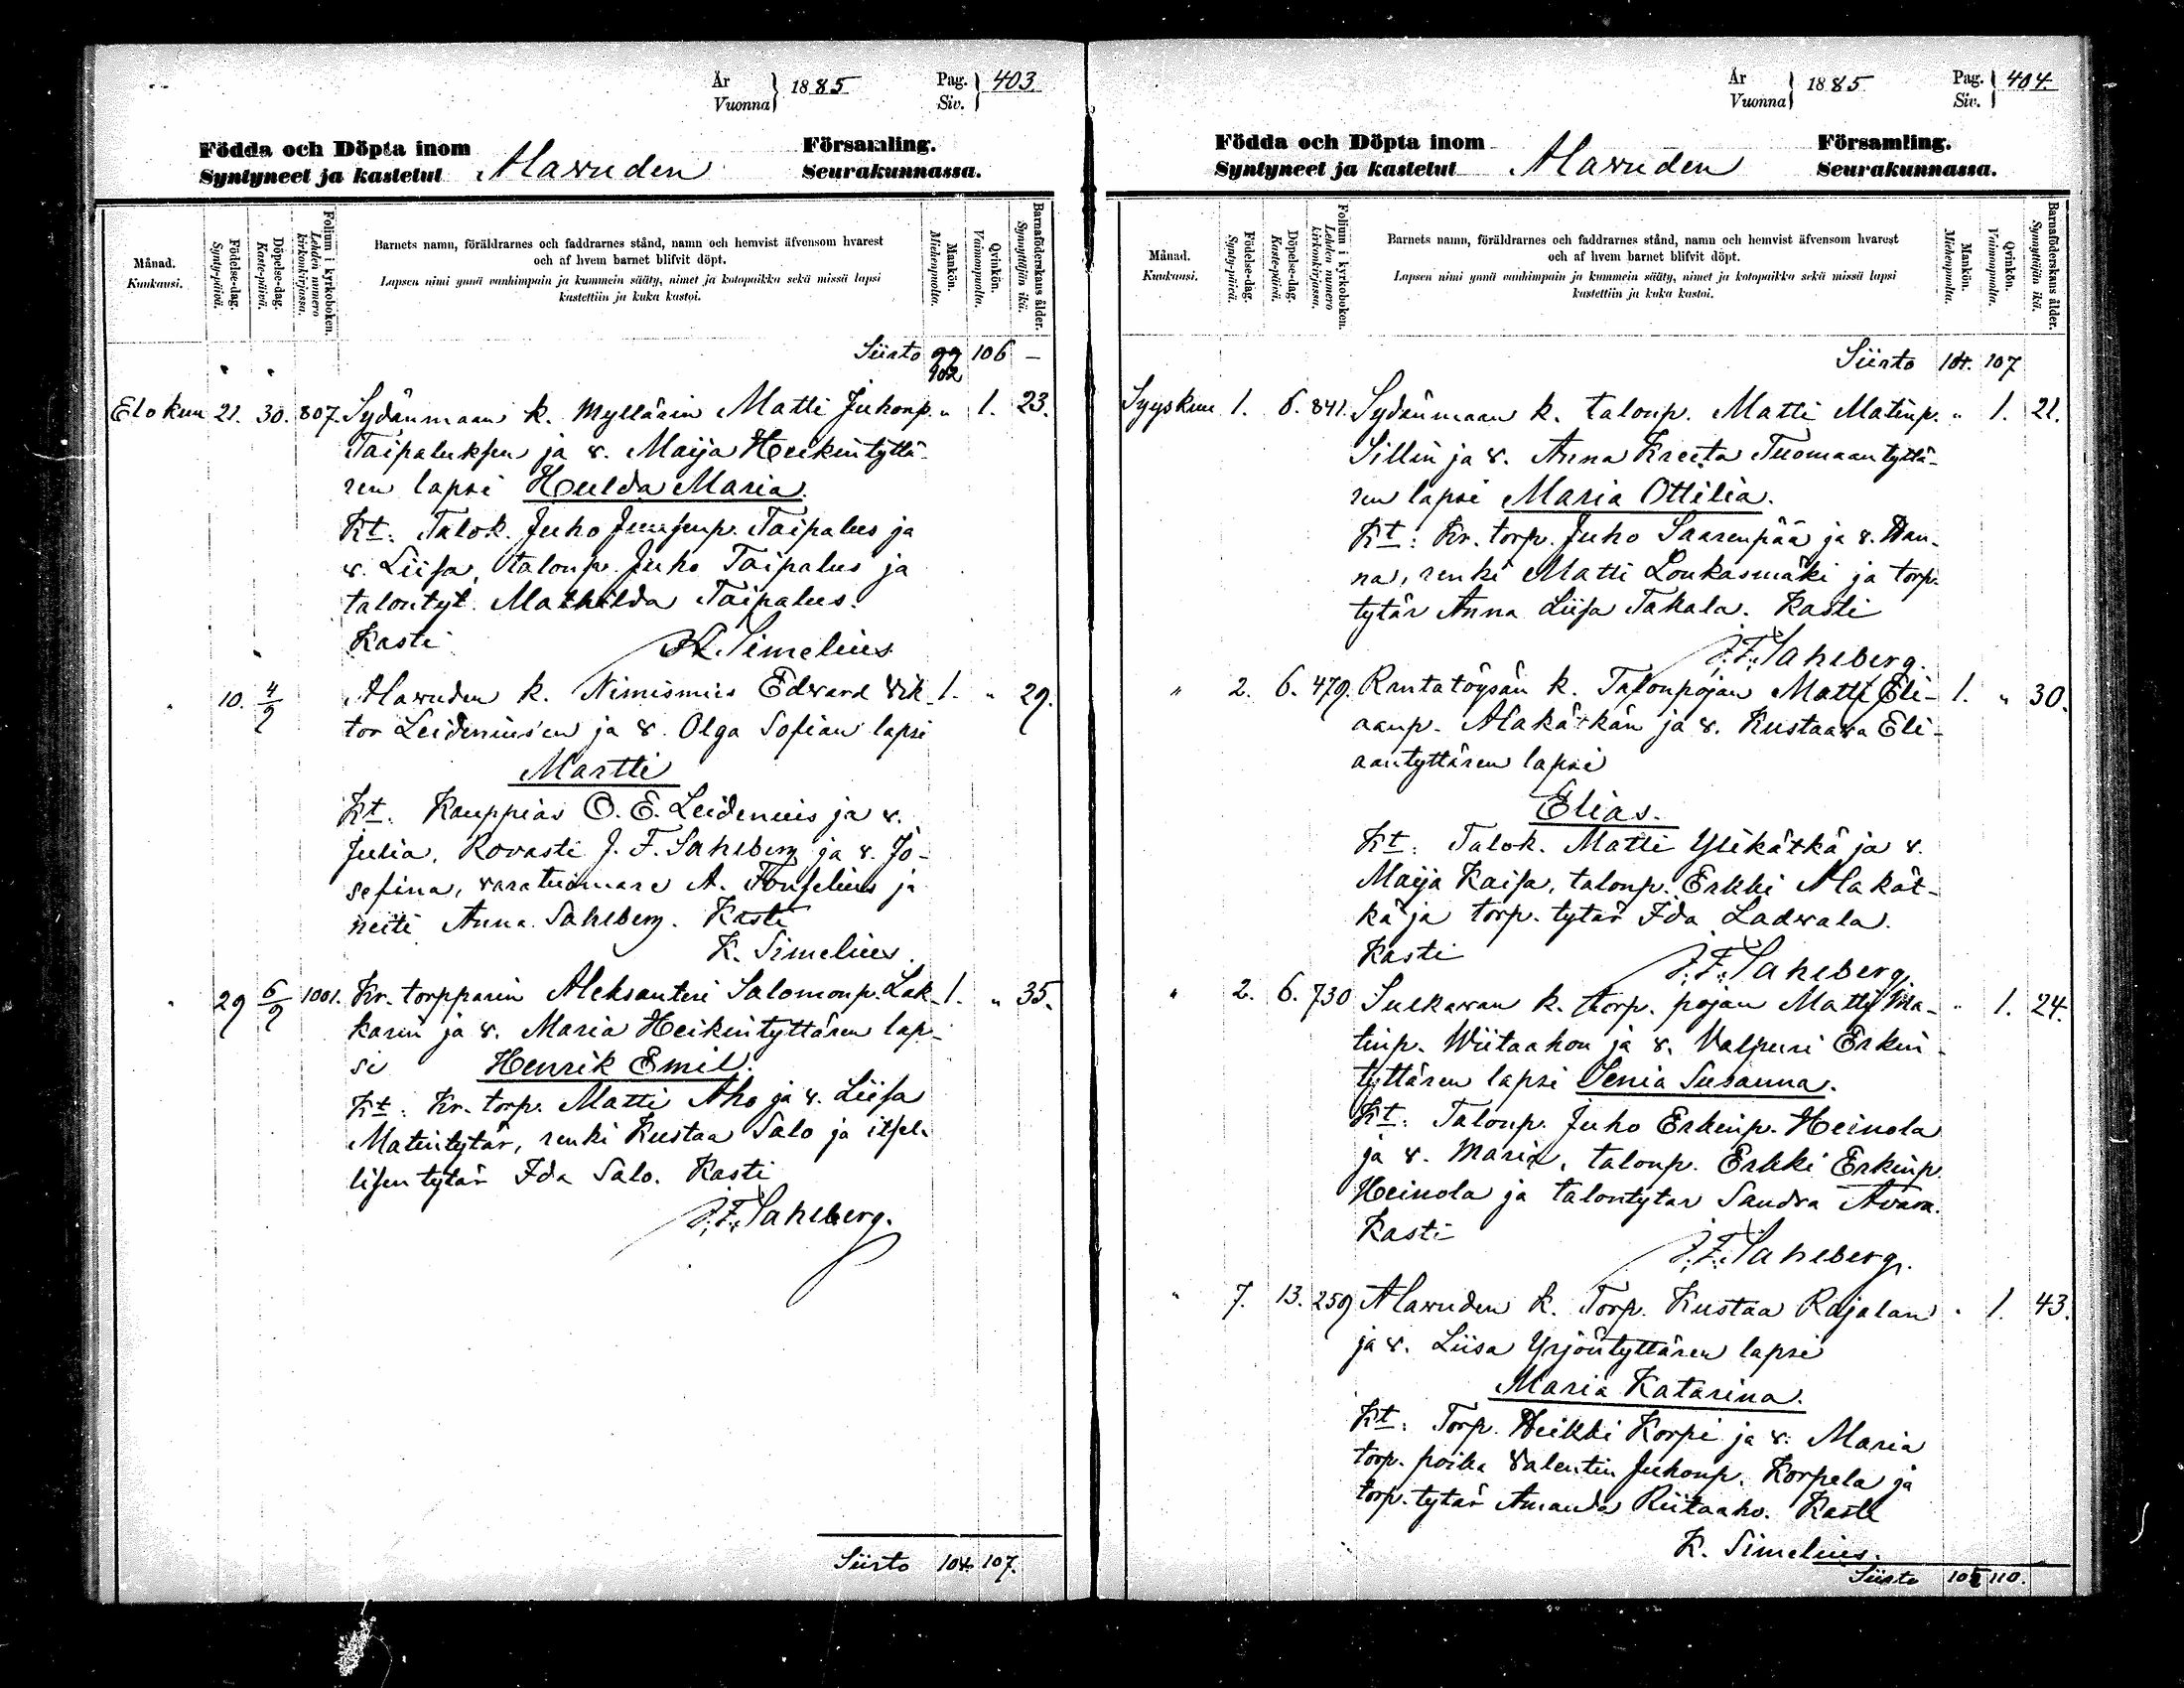 År
Vuonna
1885
Pag.
Siv.
403.
Födda och Döpta inom
Församling.
Syntyneet ja kastetut
Alavuden
Seurakunnassa.
Månad.
Kuukausi.
Födelse-dag.
Synty-päivä.
Döpelse-dag.
Kaste-päivä.
Folium i kyrkoboken.
Lehden numero kirkonkirjassa.
Barnets namn, föräldrarnes och faddrarnes stånd, namn och hemvist äfvensom hvarest
och af hvem barnet blifvit döpt.
Lapsen nimi ynnä vanhimpain ja kummein sääty, nimet ja kotopaikka sekä missä lapsi
kastettiin ja kuka kastoi.
Mankön.
Miehenpuolta.
Qvinkön.
Vaimonpuolta.
Barnaföderskans ålder.
Synnyttäjän ikä.
Siirto 99 106 —
102
Elokuu 21. 30. 807. Sydänmaan k. Myllärin Matti Juhonp. " 1. 23.
Taipaluksen ja v. Maija Heikintyttä-
ren lapsi Hulda Maria.
Kt: Talok. Juho Juhonp. Taipalus ja
v. Liisa, talonp. Juho Taipalus ja
talontyt. Mathilda Taipalus.
Kasti K. Simelius
" 10. 4/9 Alavuden k. Nimismies Edvard Vik- 1. " 29.
tor Leidenius'en ja v. Olga Sofian lapsi
Martti
Kt. Kauppias O. E. Leidenius ja v.
Julia, Rovasti J. F. Sahlberg ja v. Jo-
sefina, varatuomare A. Fonselius ja
neiti Anna Sahlberg. Kasti
K. Simelius.
" 29 6/9 1001. Kr. torpparin Aleksanteri Salomonp. Lak- 1. " 35.
karin ja v. Maria Heikintyttären lap-
si Henrik Emil.
Kt: Kr. torp. Matti Aho ja v. Liisa
Matintytär, renki Kustaa Salo ja itsel-
lisen tytär Ida Salo. Kasti
J. F. Sahlberg.
Siirto 104. 107.
År
Vuonna
1885
Pag.
Siv.
404.
Födda och Döpta inom
Församling.
Syntyneet ja kastetut
Alavuden
Seurakunnassa.
Månad.
Kuukausi.
Födelse-dag.
Synty-päivä.
Döpelse-dag.
Kaste-päivä.
Folium i kyrkoboken.
Lehden numero kirkonkirjassa.
Barnets namn, föräldrarnes och faddrarnes stånd, namn och hemvist äfvensom hvarest
och af hvem barnet blifvit döpt.
Lapsen nimi ynnä vanhimpain ja kummein sääty, nimet ja kotopaikka sekä missä lapsi
kastettiin ja kuka kastoi.
Mankön.
Miehenpuolta.
Qvinkön.
Vaimonpuolta.
Barnaföderskans ålder.
Synnyttäjän ikä.
Siirto 104. 107
Syyskuu 1. 6. 841. Sydänmaan k. talonp. Matti Matinp. " 1. 21.
Sillin ja v. Anna Kreeta Tuomaantyttä-
ren lapsi Maria Ottilia.
Kt: Kr. torp. Juho Saarenpää ja v. Han-
na, renki Matti Loukasmäki ja torp.
tytär Anna Liisa Takala. Kasti
J. F. Sahlberg.
" 2. 6. 479. Rantatöysän k. Talonpojan Matti Eli- 1. " 30.
aanp. Alakätkän ja v. Kustaava Eli-
aantyttären lapsi
Elias.
Kt: Talok. Matti Ylikätkä ja v.
Maija Kaisa, talonp. Erkki Alakät-
kä ja torp. tytär Ida Ladvala.
Kasti J. F. Sahlberg.
" 2. 6. 730 Sulkavan k. torp. pojan Matti Ma- " 1. 24.
tinp. Wiitaahon ja v. Valpuri Erkin-
tyttären lapsi Senia Susanna.
Kt: Talonp. Juho Erkinp. Heinola
ja v. Maria, talonp. Erkki Erkinp.
Heinola ja talontytar Sandra
Kasti J. F. Sahlberg.
" 7. 13. 259 Alavuden k. Torp. Kustaa Rajalan " 1. 43.
ja v. Liisa Yrjöntyttären lapsi
Maria Katarina.
Kt: Torp. Heikki Korpi ja v. Maria
torp. poika Valentin Juhonp. Korpela ja
torp. tytär Amanda Riitaaho. Kasti
K. Simelius.
Siirto 105 110.